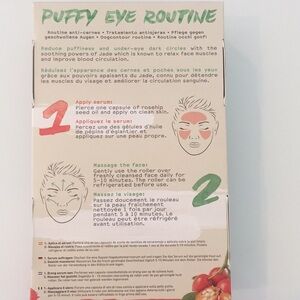 PUFFY EYE ROUTINE
Routine anti-cernes • Tratamiento antiojeras • Pflege gegen
geschwollene Augen • Oogcontour routine • Routine occhi gonfi
Reduce puffiness and under-eye dark circles with the
soothing powers of Jade which is known to relax face muscles
and improve blood circulation.
Réduisez l'apparence des cernes et poches sous les yeux
grâce aux pouvoirs apaisants du Jade, connu pour détendre
les muscles du visage et améliorer la circulation sanguine.
1
Apply serum:
Pierce one capsule of rosehip
seed oil and apply on clean skin.
Appliquez le serum:
Percez une des gélules d'huile
de pépins d'églantier et
appliquez sur une peau propre.
Massage the face:
Gently use the roller over
freshly cleansed face daily for
5-10 minutes. The roller can be
refrigerated before use.
Massez le visage:
Passez doucement le rouleau
sur la peau fraîchement
nettoyée 1 fois par jour
pendant 5 à 10 minutes. Le
rouleau peut être réfrigéré
avant utilisation.
2